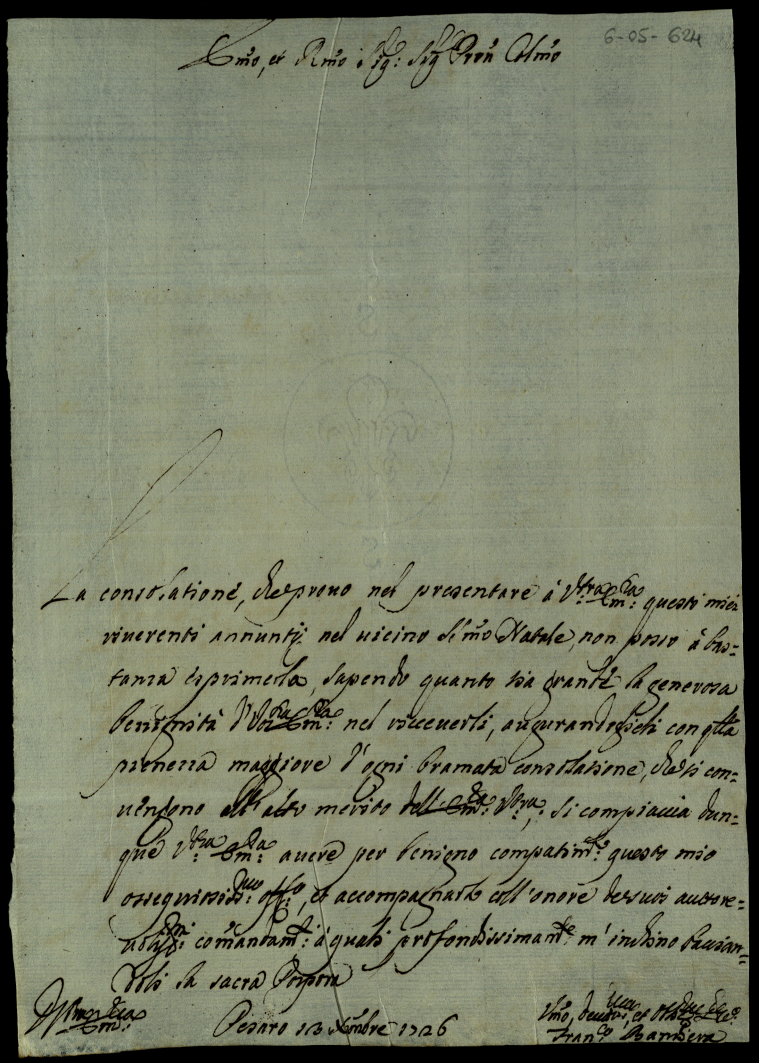 6-05-624
Em̃o, et Rm̃o Sig:r Sig:r Pron Colm̃o
La consolatione, che provo nel presentare à V:ra Em:za questi miei
riverenti annuntij nel vicino S:mo Natale, non posso à bas=
tanza esprimerla, sapendo quanto sia grande la generosa
benignità d'V:ra Em:za nel riceverli, augurandoglieli con q̃lla
pienezza maggiore d'ogni bramata consolatione, che si con=
vengono all'alto merito dell'Em:za V:ra; Si compiaccia dun=
que V:ra Em:za avere per benigno compatim:to questo mio
ossequiosis:mo off:o, et accompagnarlo coll'onore de suoi autore=
volis:mi com̃andam:ti à quali profondissimam:te m'inchino bacian=
doli la sacra Porpora
Pesaro 13 Xm̃bre 1726
Vm̃o, devot:mo, et Obl:mo
Fran:co